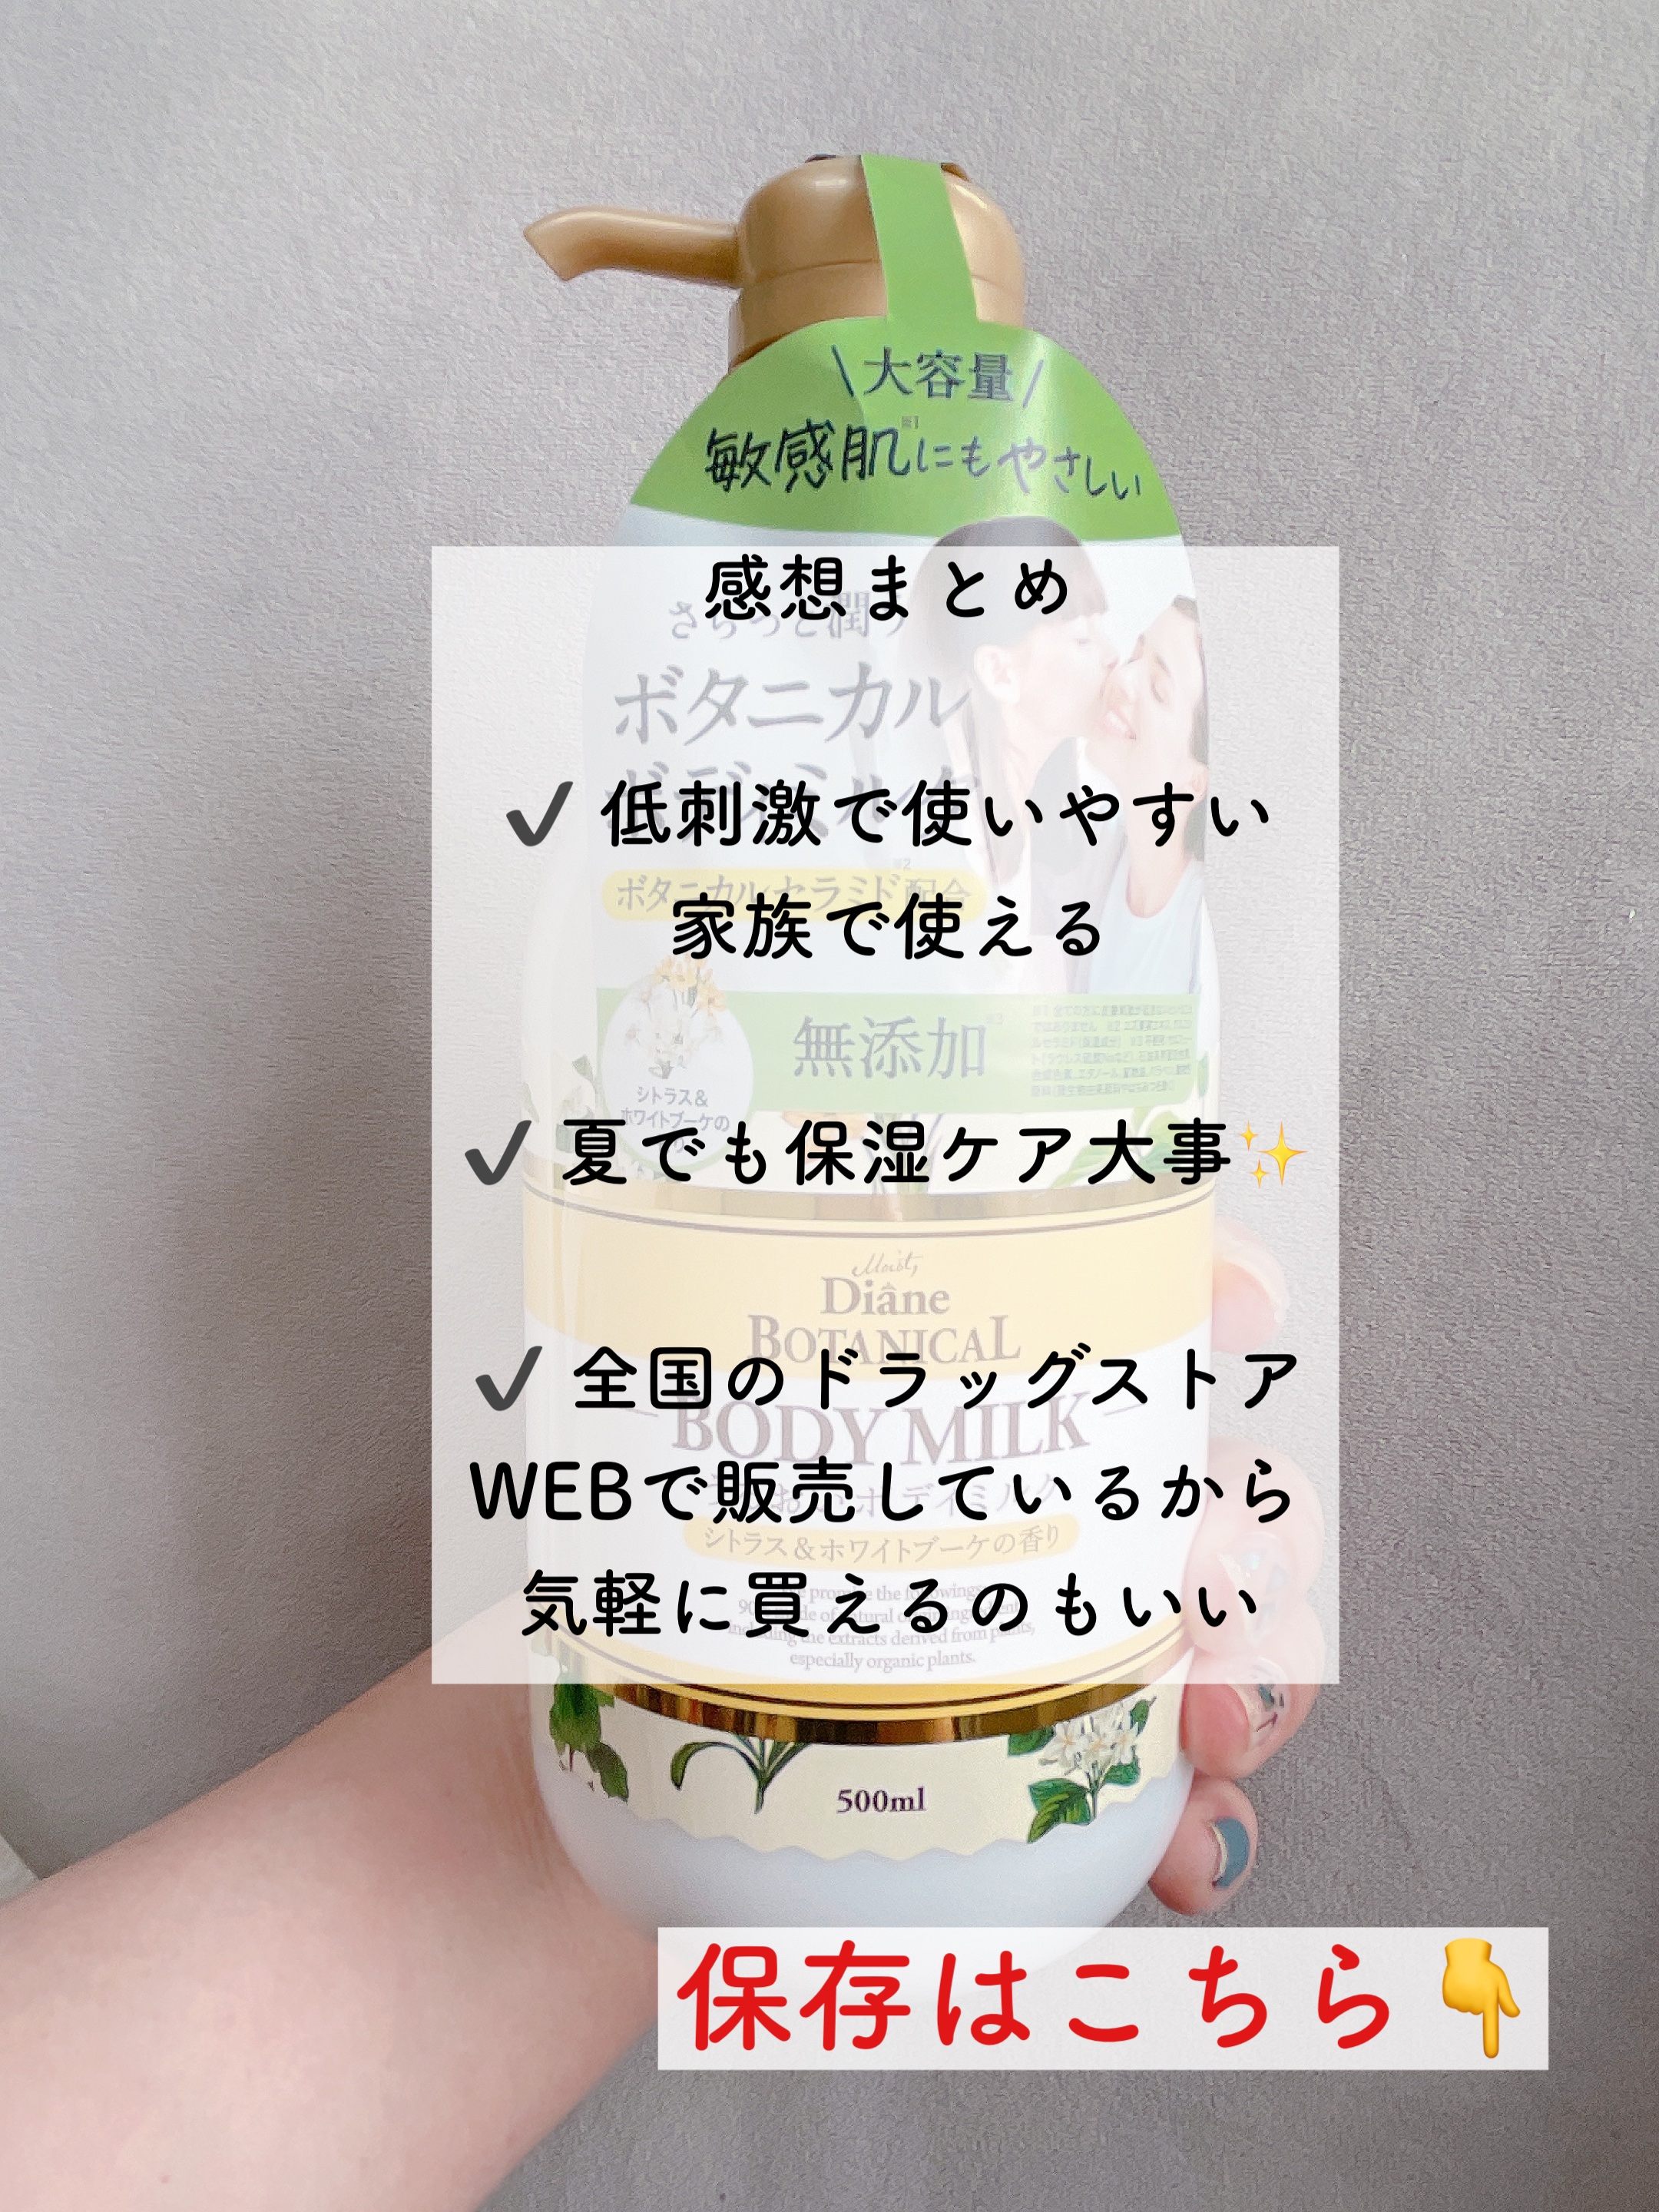 \大容量/
敏感肌にもやさしい
感想まとめ
さらっと潤う
ボタニカル
ボディミルク
✔ 低刺激で使いやすい
ボタニカルセラミド※2配合
家族で使える
無添加※3
シトラス&
ホワイトブーケの
✔ 夏でも保湿ケア大事✨
Moist,
Diâne
BOTANICAL
✔ 全国のドラッグストア
BODY MILK
WEBで販売しているから
シトラス&ホワイトブーケの香り
気軽に買えるのもいい
including the extracts derived from plants,
especially organic plants.
500ml
保存はこちら👇